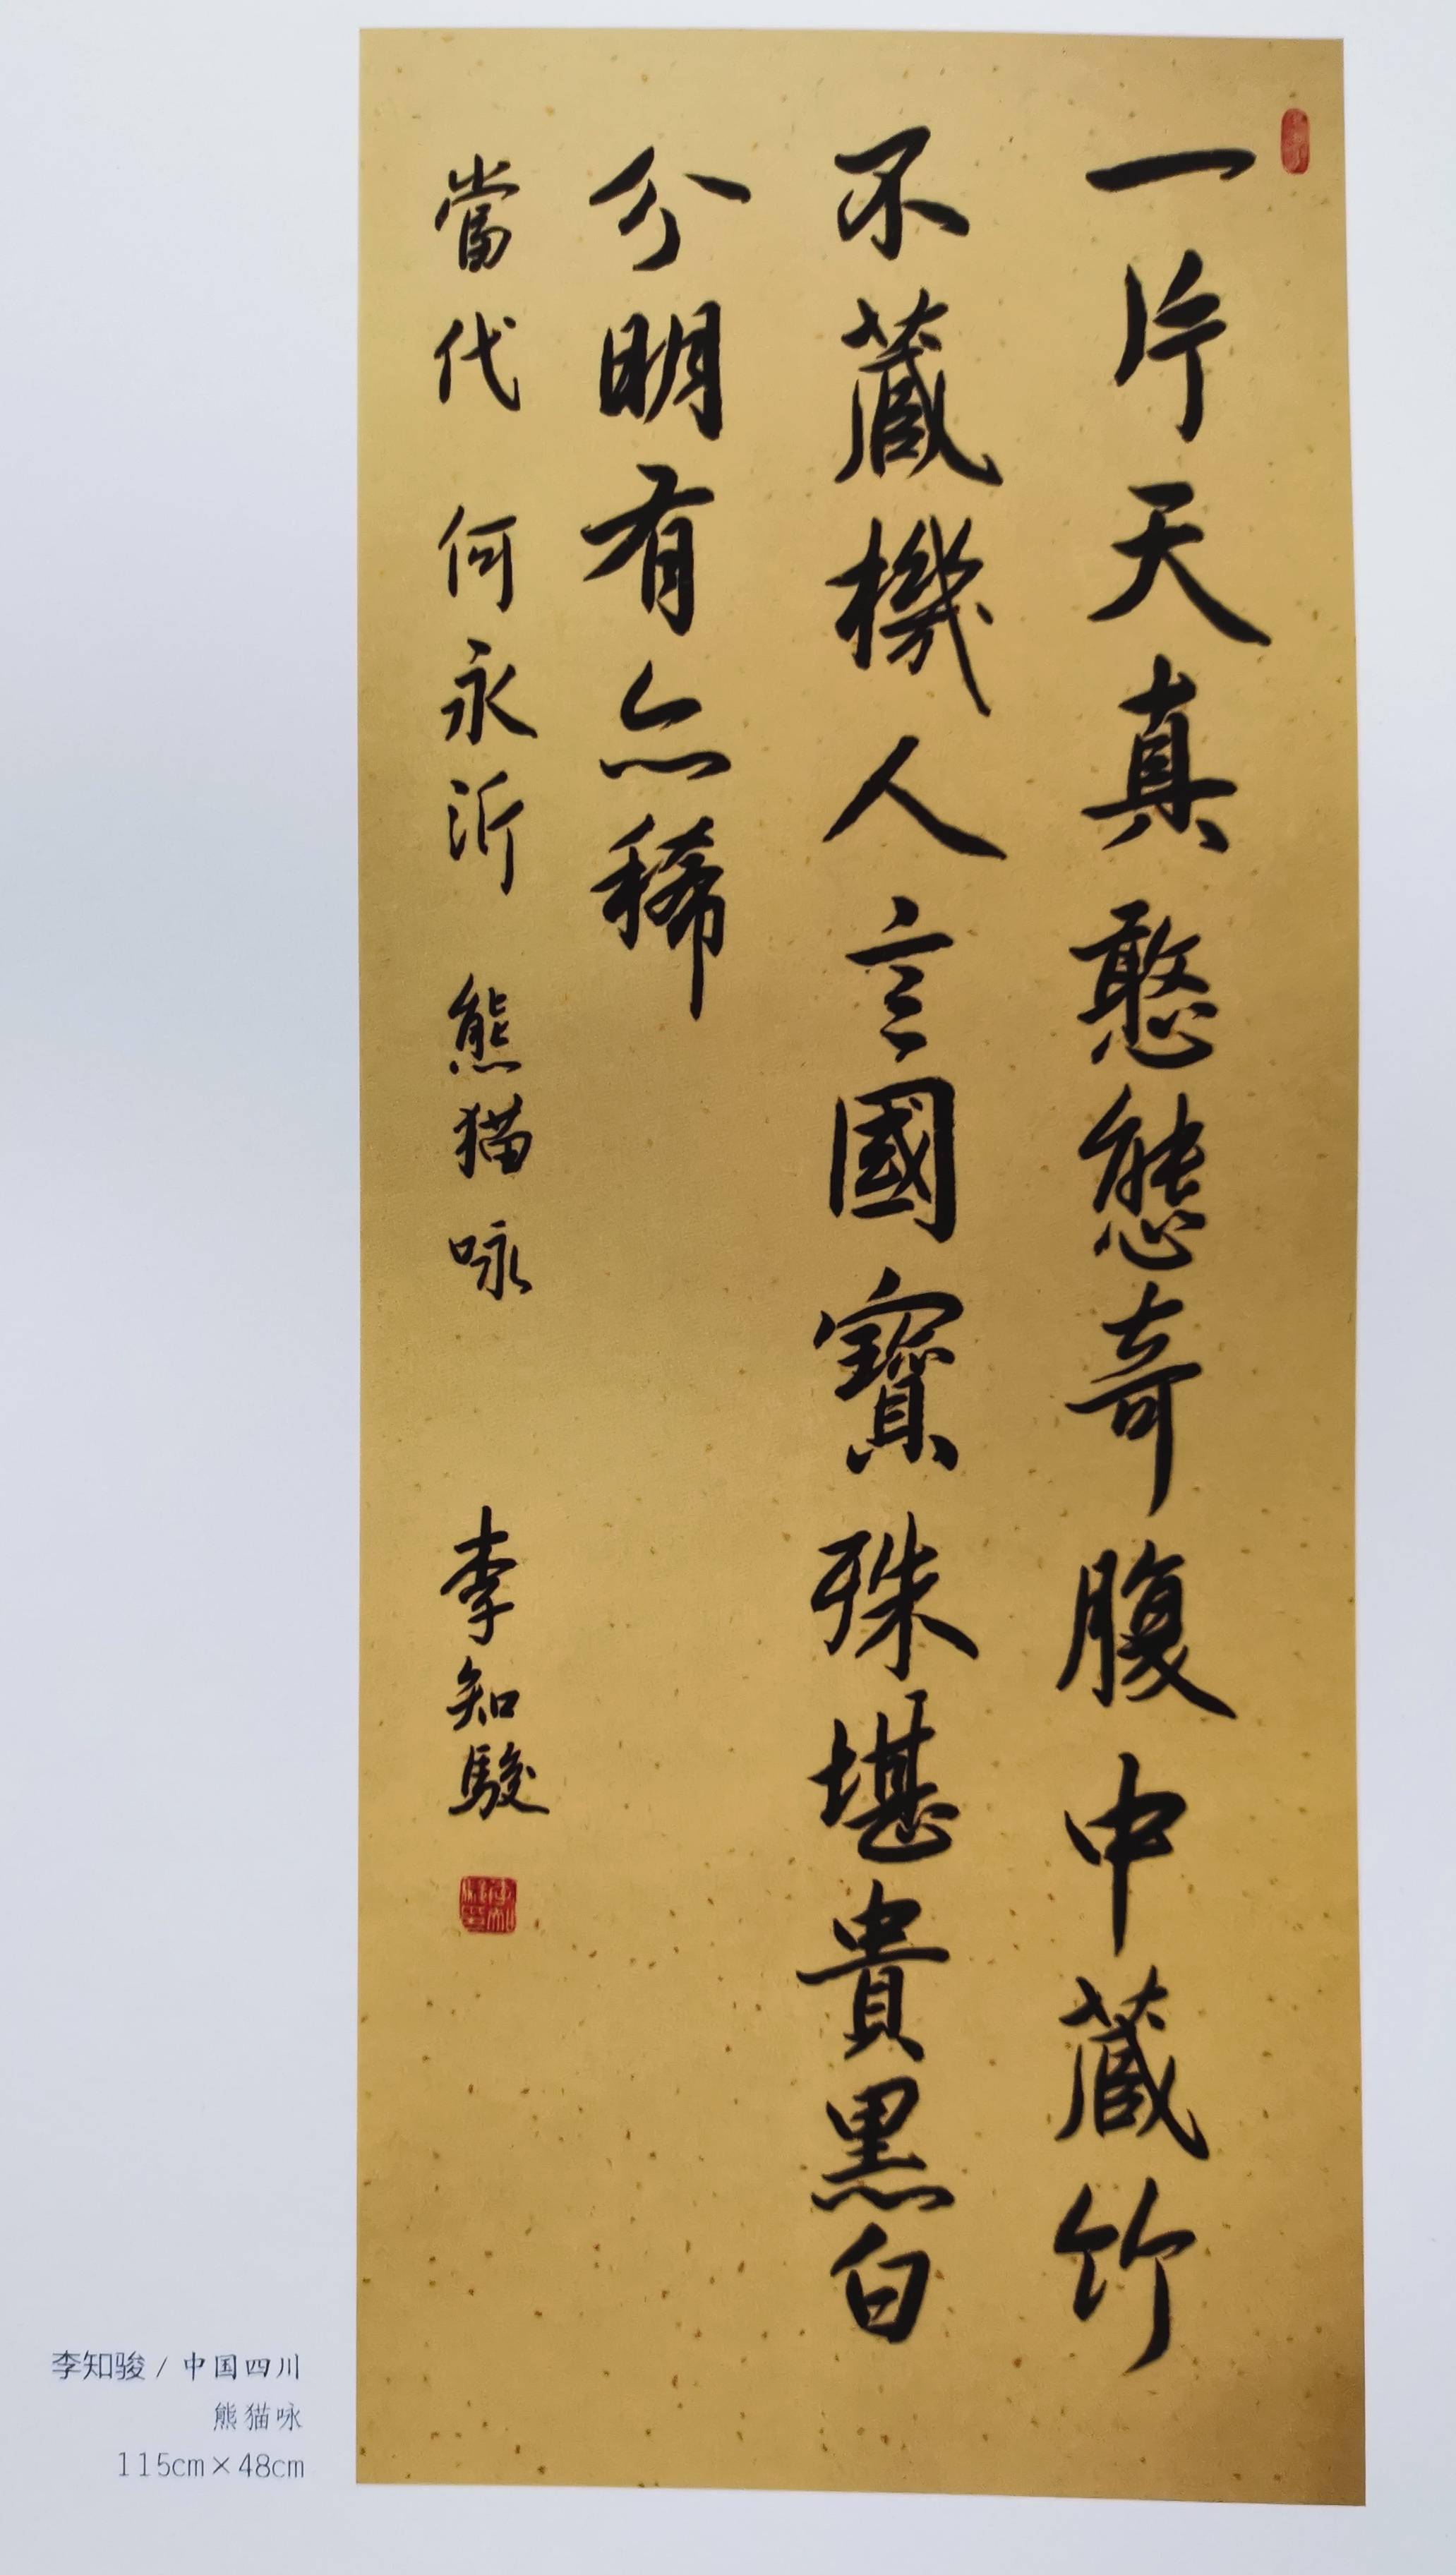 一片天真憨態奇腹中藏竹
不藏機人言國寶殊堪貴黑白
分明有亦稀
當代 何永沂 熊猫咏 李知駿
李知骏 / 中国四川
熊猫咏
115cm×48cm